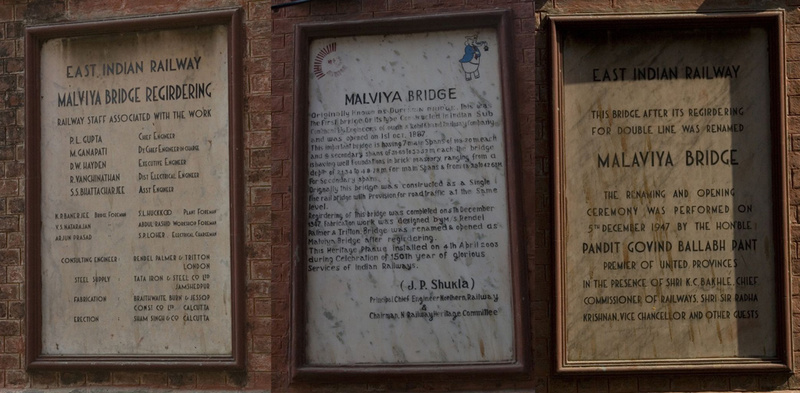 EAST INDIAN RAILWAY
MALVIYA BRIDGE REGIRDERING
RAILWAY STAFF ASSOCIATED WITH THE WORK
P.L. GUPTA CHIEF ENGINEER
M. GANAPATI DY CHIEF ENGINEER-IN-CHARGE
D.W. HAYDEN EXECUTIVE ENGINEER
R. VANCHINATHAN DIST ELECTRICAL ENGINEER
S.S. BHATTACHARJEE ASST ENGINEER
BANERJEE BRIDGE FOREMAN S.L. PLANT FOREMAN
V.S. NATARAJAN ABDUL RASHID WORKSHOP FOREMAN
ARJUN PRASAD S.P. LOHER ELECTRICAL CHARGEMAN
CONSULTING ENGINEER RENDEL PALMER & TRITTON
LONDON
STEEL SUPPLY TATA IRON & STEEL CO LTD
JAMSHEDPUR
FABRICATION BRAITHWAITE BURN & JESSOP
CONST CO LTD CALCUTTA
ERECTION SHAM SINGH & CO CALCUTTA
MALVIYA BRIDGE
Originally known as Dufferin Bridge, this was
the first bridge of its type constructed in Indian Sub
Continent by Engineers of
and was opened on 1st Oct. 1887
This important bridge is having 7 main Spans of each
and 9 secondary spans of each. the bridge
is having well foundations in brick masonry ranging from a
depth of for main Spans
for Secondary spans.
Originally this bridge was constructed as a Single l
ine rail bridge with Provision for road traffic at the Same
level.
Regirdering of this bridge was completed on 5th December
1947. fabrication work was designed by M/s. Rendel
Palmer & Tritton. Bridge was renamed & opened as
Malviya Bridge after regirdering.
This Heritage Plaque installed on 4th April 2003
during Celebration of 150th year of glorious
Services of Indian Railways.
(J. P. Shukla)
Principal Chief Engineer Northern Railway
&
Chairman, N. Railway Heritage Committee
EAST INDIAN RAILWAY
THIS BRIDGE AFTER ITS REGIRDERING
FOR DOUBLE LINE WAS RENAMED
MALAVIYA BRIDGE
THE RENAMING AND OPENING
CEREMONY WAS PERFORMED ON
5TH DECEMBER 1947 BY THE HON'BLE
PANDIT GOVIND BALLABH PANT
PREMIER OF UNITED PROVINCES
IN THE PRESENCE OF SHRI K.C. BAKHLE, CHIEF
COMMISSIONER OF RAILWAYS, SHRI SIR RADHA
KRISHNAN, VICE CHANCELLOR AND OTHER GUESTS